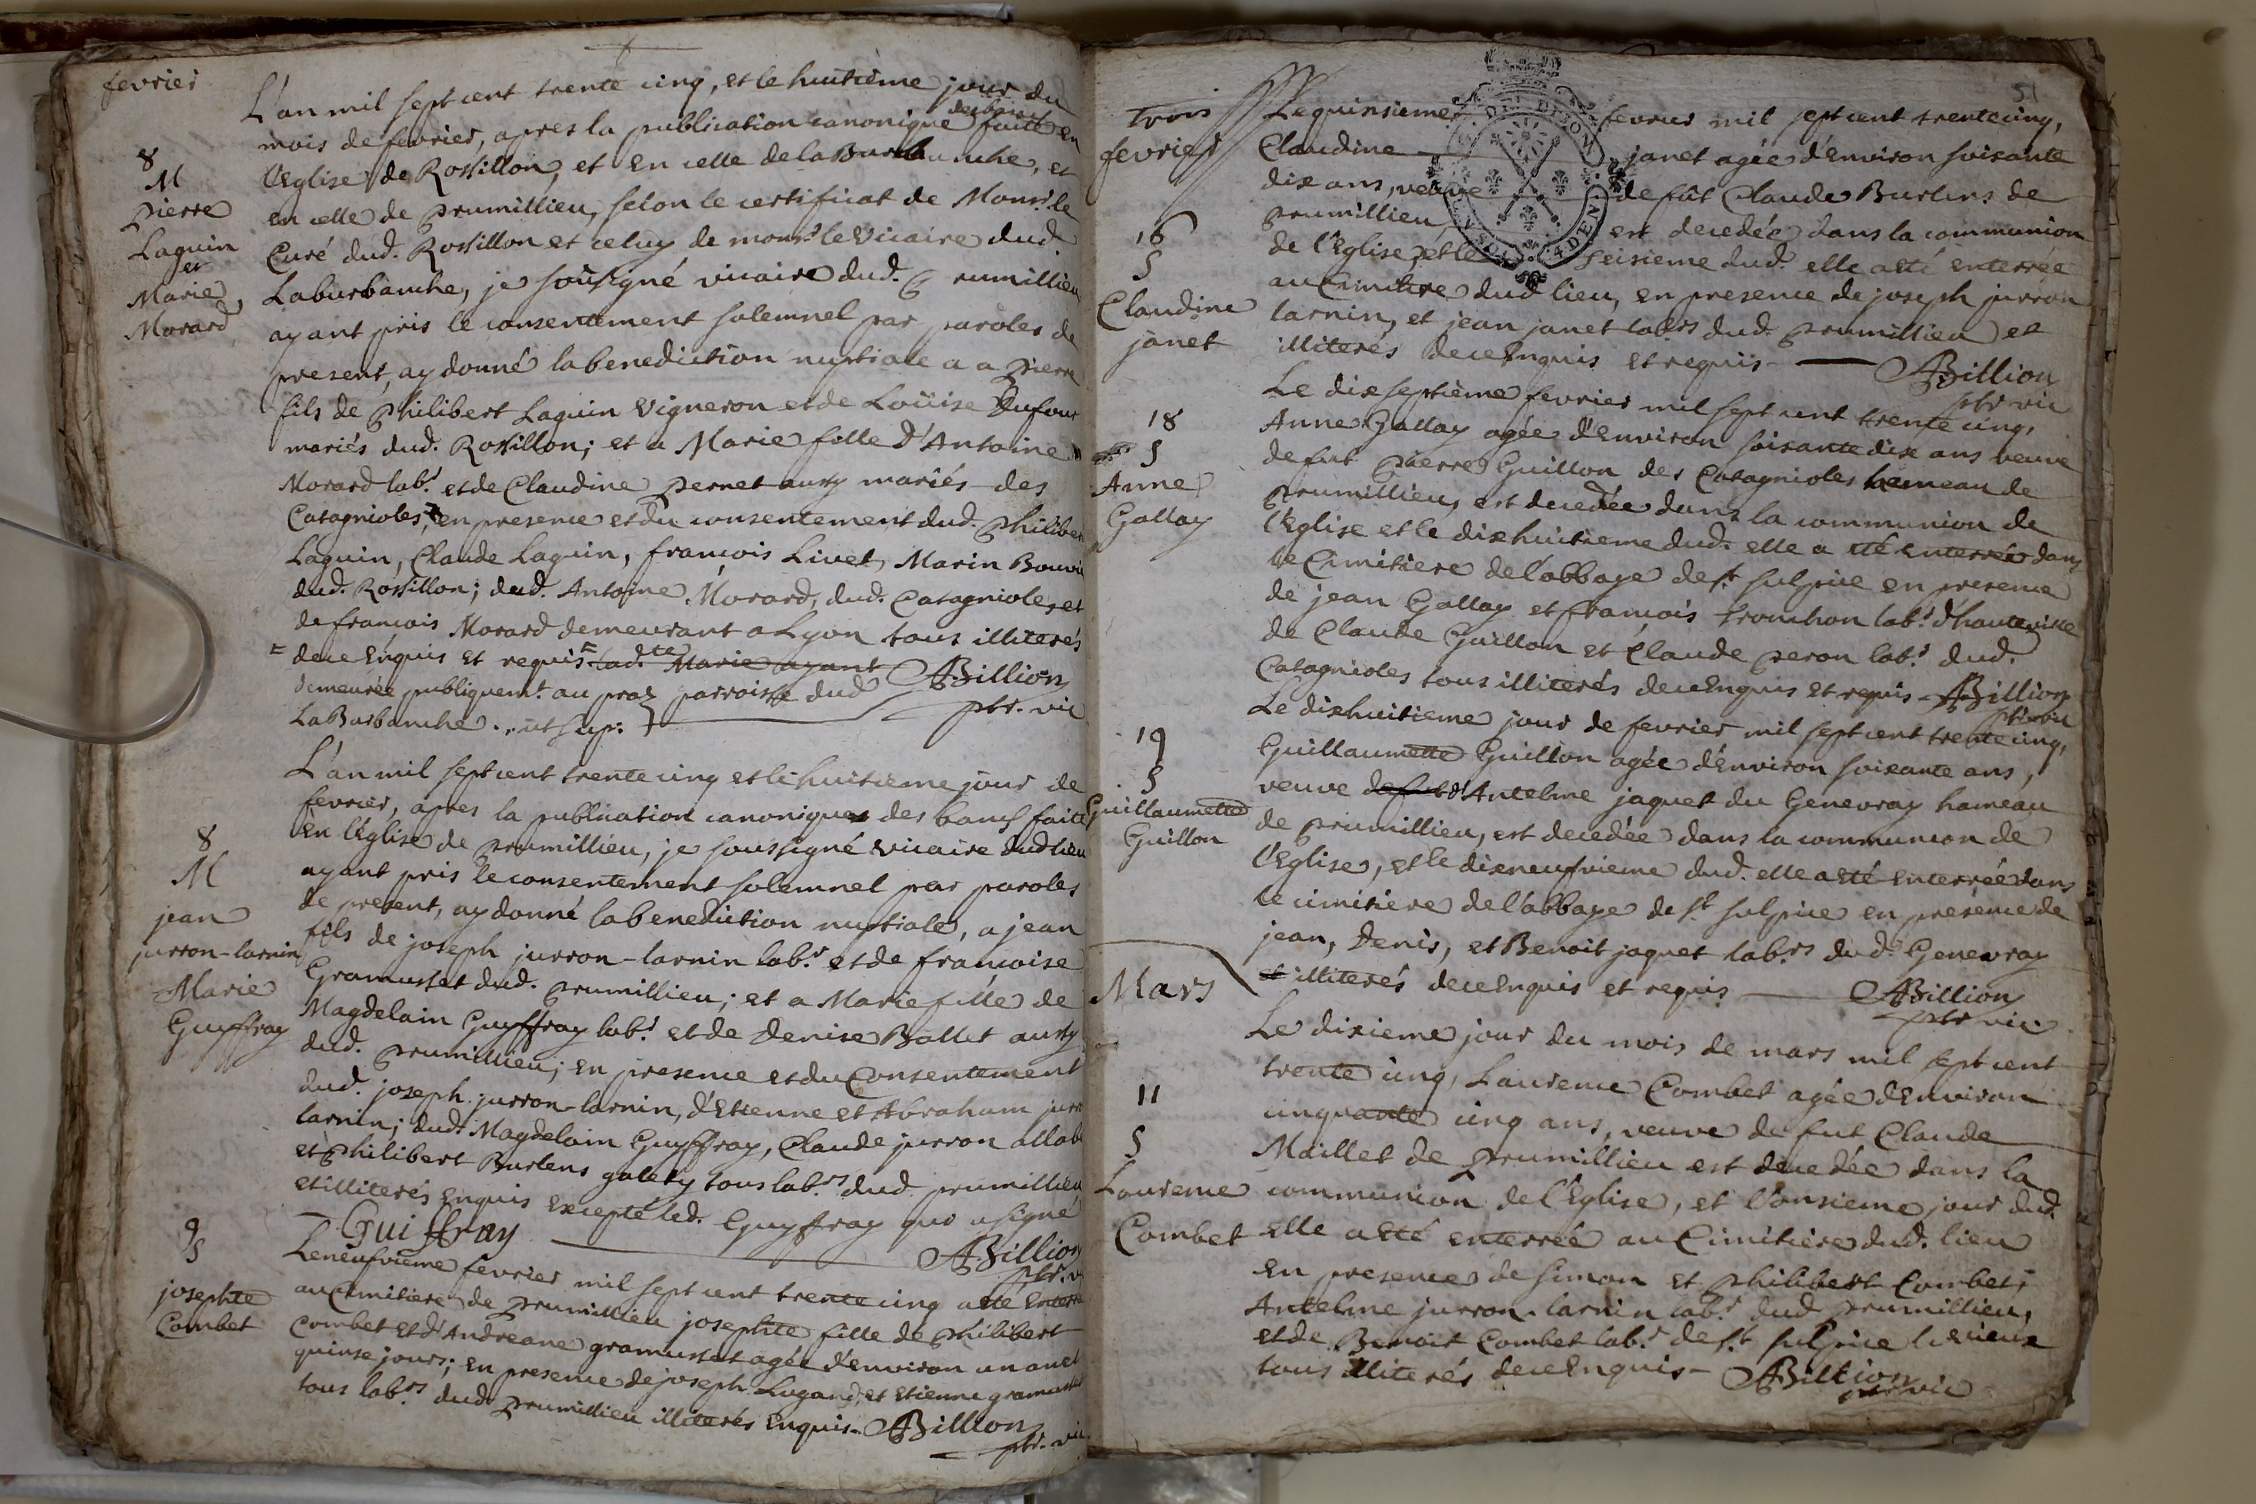 fevrier
L'an mil sept cent trente cinq, et le huitième jour du
mois de fevrier, apres la publication canonique des bans faite en
l'Eglise de Rossillon, et en celle de la Burbanche, et
en celle de prumillieu, selon le certificat de Monsr. le
Curé dud. Rossillon et celuy de monsr. le Vicaire dud.
Laburbanche, je sousigné vicaire dud. prumillieu
ayant pris le consentement solemnel par paroles de
present, ay donné la benediction nuptiale a a pierre
fils de philibert Laguin Vigneron et de Loüise Dufour
mariés dud. Rossillon; et a Marie fille d'Antoine
Morard labr. et de Claudine pernet aussy mariés des
Catagnioles, en presence et du consentement dud. philibert
Laguin, Claude Laguin, françois Livet, Marin Bouvie
dud. Rossillon; dud. Antoine Morard, dud. Catagnioles, et
de francois Morard demeurant a Lyon tous illiterés
de ce Enquis et requis = lad.te Marie ayant ABillion
demeurée publiquemt. au paroisse dud ptr. vic
LaBurbanche. ut sup.
8
M
pierre
Laguin
et
Marie
Morard
L'an mil sept cent trente cinq et le huitieme jour de
fevrier, apres la publication canonique des bans faite
en l'Eglise de prumillieu, je soussigné vicaire dud lieu
ayant pris le consentement solemnel par paroles
de present, ay donné la benediction nuptiale, a jean
fils de joseph jurron-larnin labr. et de francoise
Gramusset dud. prumillieu; et a Marie fille de
Magdelain Guyffray labr. et de Denise Ballet aussy
dud. prumillieu; en presence et du Consentement
dud. joseph jurron-larnin, d'Etienne et Abraham jurr
larnin; dud. Magdelain Guyffray, Claude jurron allab
et philibert Burlens galety tous labrs. dud prumillieu
et illiterés enquis excepté led. Guyffray qui a signé
Guiffray ABillion
ptr. v
8
M
jean
jurron-larnin
Marie
Guyffray
Le neufvieme fevrier mil sept cent trente cinq a eté enterré
au Cimitiere de prumillieu josephte fille de philibert
Combet et d'Andreane gramusset agée d'environ un an et
quinse jours; en presence de joseph Lugand, et etienne gramusset
tous labrs. dud. prumillieu illiterés enquis. ABillion
ptr. vic
9
S
josephte
Combet
51
Trois
fevrier
Le quinsieme fevrier mil sept cent trente cinq,
Claudine janet agée d'Environ soixante
dix ans, veuve de fût Claude Burlens de
prumillieu est decedée dans la communion
de l'Eglise, et le seisieme dud. elle a eté enterrée
au Cimitiere dud lieu, en presence de joseph jurron
larnin, et jean janet labrs dud. prumillieu et
illiterés de ce Enquis et requis ABillion
ptr vic
16
S
Claudine
janet
Le dix septième fevrier mil sept cent trente cinq,
Anne Gallay agée d'environ soixante dix ans veuve
de fut pierre Guillon des Catagnioles hameau de
prumillieu, est decedée dans la communion de
l'Eglise et le dix huitieme dud. elle a eté enterrée dans
le Cimitiere de l'abbaye de st. sulpice en presence
de jean Gallay et francois tronchon labr. d'hauteville
de Claude Guillon et Claude peron labr. dud.
Catagnioles tous illiterés de ce Enquis et requis - ABillion
ptr vic
18
S
Anne
Gallay
Le dix huitieme jour de fevrier mil sept cent trente cinq,
Guillaumette Guillon agée d'Environ soixante ans,
veuve de fut d'Antelme jaquet du Genevray hameau
de prumillieu, est decedée dans la communion de
l'Eglise, et le dix neufvieme dud. elle a eté enterrée dans
le cimitiere de l'abbaye de st. sulpice en presence de
jean, Denis, et Benoit jaquet labrs. dud. Genevray
et illiterés de ce Enquis et requis ABillion
ptr vic
19
S
Guillaumette
Guillon
Mars
Le dixieme jour du mois de mars mil sept cent
trente cinq, Laurence Combet agée d'Environ
cinquante cinq ans, veuve de fut Claude
Maillet de prumillieu est decedée dans la
communion de l'Eglise, et l'onsieme jour dud.
elle a eté enterrée au Cimitiere dud. lieu
en presence de simon et philibert Combet,
Antelme jurron-larnin labrs. dud prumillieu,
et de Benoit Combet labr. de st. sulpice le vieux
tous illiterés de ce Enquis - ABillion
ptr vic
11
S
Laurence
Combet